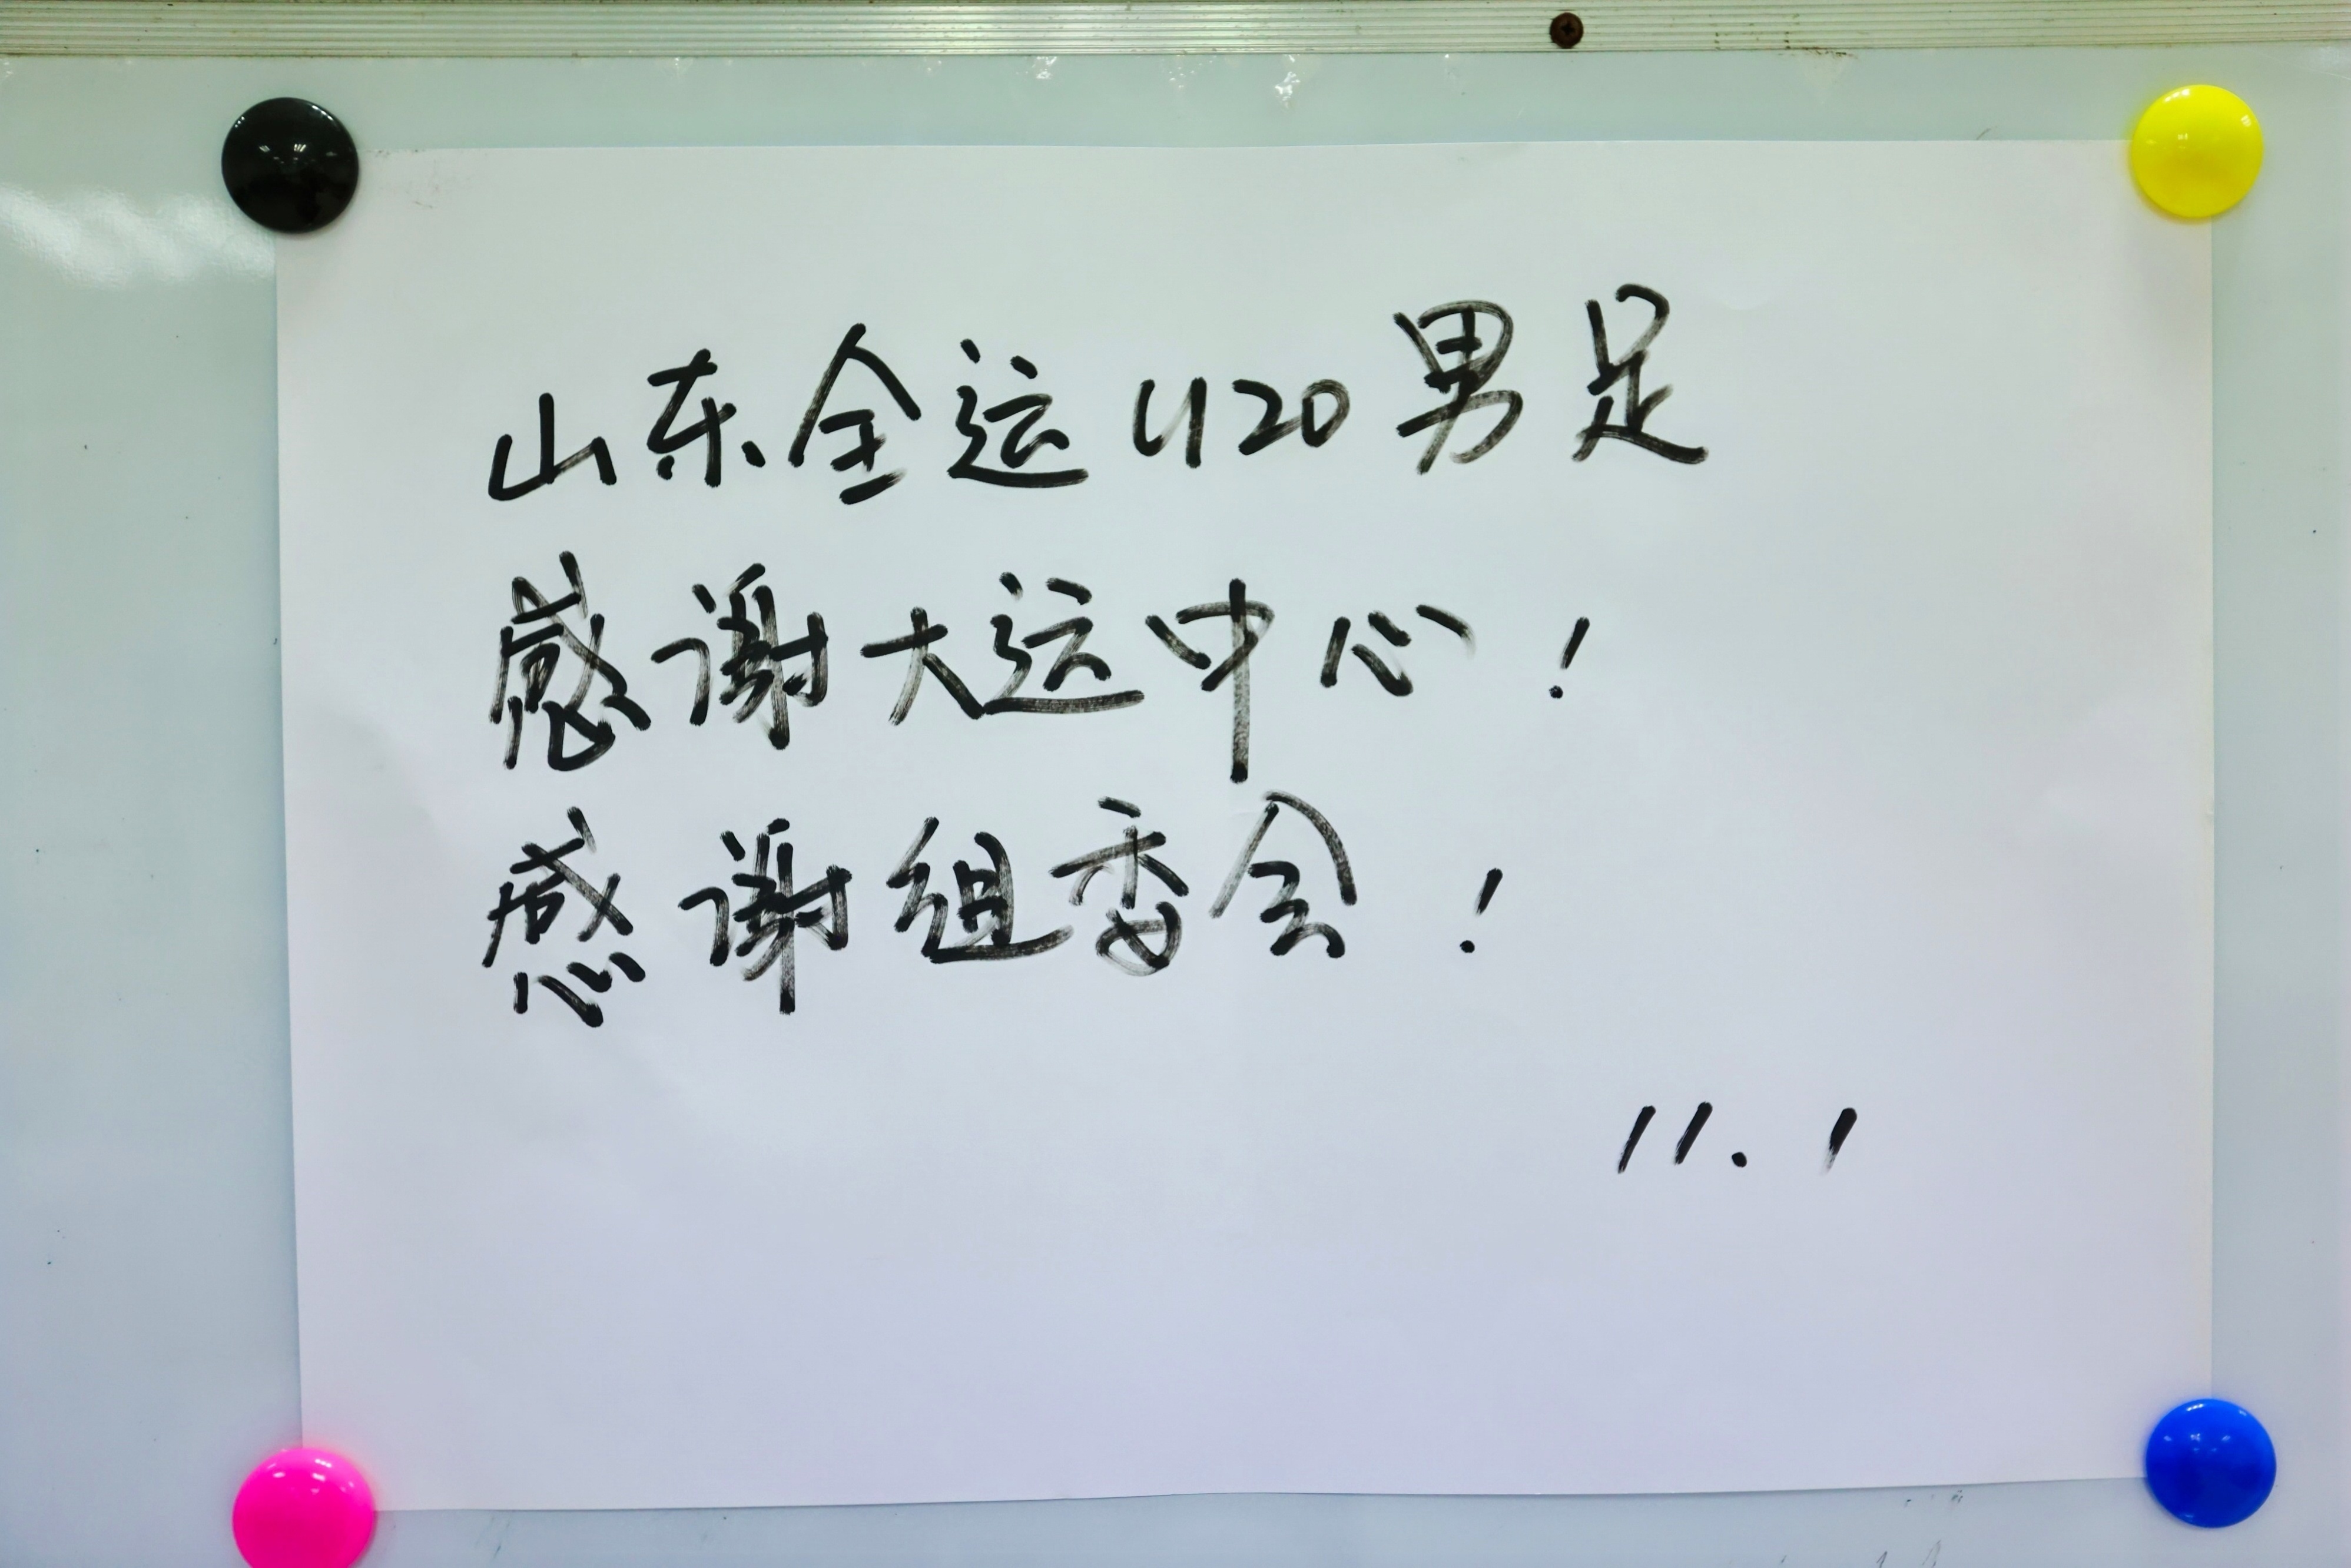 山东全运U20男足
感谢大运中心！
感谢组委会！
11.1